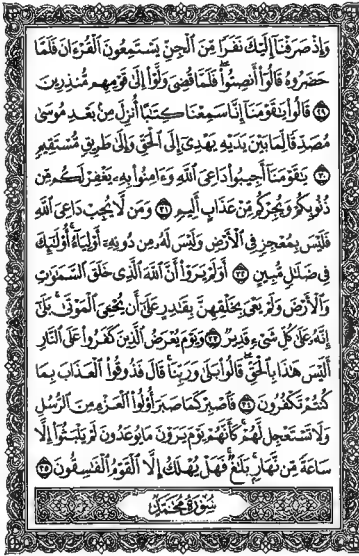 وَإِذْ صَرَفْنَآ إِلَيْكَ نَفَرًا مِّنَ ٱلْجِنِّ يَسْتَمِعُونَ ٱلْقُرْءَانَ فَلَمَّا
حَضَرُوهُ قَالُوٓا۟ أَنصِتُوا۟ فَلَمَّا قُضِىَ وَلَّوْا۟ إِلَىٰ قَوْمِهِم مُّنذِرِينَ
٢٩ قَالُوا۟ يَٰقَوْمَنَآ إِنَّا سَمِعْنَا كِتَٰبًا أُنزِلَ مِنۢ بَعْدِ مُوسَىٰ
مُصَدِّقًا لِّمَا بَيْنَ يَدَيْهِ يَهْدِىٓ إِلَى ٱلْحَقِّ وَإِلَىٰ طَرِيقٍ مُّسْتَقِيمٍ
٣٠ يَٰقَوْمَنَآ أَجِيبُوا۟ دَاعِىَ ٱللَّهِ وَءَامِنُوا۟ بِهِۦ يَغْفِرْ لَكُم مِّن
ذُنُوبِكُمْ وَيُجِرْكُم مِّنْ عَذَابٍ أَلِيمٍ ٣١ وَمَن لَّا يُجِبْ دَاعِىَ ٱللَّهِ
فَلَيْسَ بِمُعْجِزٍ فِى ٱلْأَرْضِ وَلَيْسَ لَهُۥ مِن دُونِهِۦٓ أَوْلِيَآءُ أُو۟لَٰٓئِكَ
فِى ضَلَٰلٍ مُّبِينٍ ٣٢ أَوَلَمْ يَرَوْا۟ أَنَّ ٱللَّهَ ٱلَّذِى خَلَقَ ٱلسَّمَٰوَٰتِ
وَٱلْأَرْضَ وَلَمْ يَعْىَ بِخَلْقِهِنَّ بِقَٰدِرٍ عَلَىٰٓ أَن يُحْـِۧىَ ٱلْمَوْتَىٰ بَلَىٰٓ
إِنَّهُۥ عَلَىٰ كُلِّ شَىْءٍ قَدِيرٌ ٣٣ وَيَوْمَ يُعْرَضُ ٱلَّذِينَ كَفَرُوا۟ عَلَى ٱلنَّارِ
أَلَيْسَ هَٰذَا بِٱلْحَقِّ قَالُوا۟ بَلَىٰ وَرَبِّنَا قَالَ فَذُوقُوا۟ ٱلْعَذَابَ بِمَا
كُنتُمْ تَكْفُرُونَ ٣٤ فَٱصْبِرْ كَمَا صَبَرَ أُو۟لُوا۟ ٱلْعَزْمِ مِنَ ٱلرُّسُلِ
وَلَا تَسْتَعْجِل لَّهُمْ كَأَنَّهُمْ يَوْمَ يَرَوْنَ مَا يُوعَدُونَ لَمْ يَلْبَثُوٓا۟ إِلَّا
سَاعَةً مِّن نَّهَارٍۭ بَلَٰغٌ فَهَلْ يُهْلَكُ إِلَّا ٱلْقَوْمُ ٱلْفَٰسِقُونَ ٣٥
سُورَةُ مُحَمَّدٍ